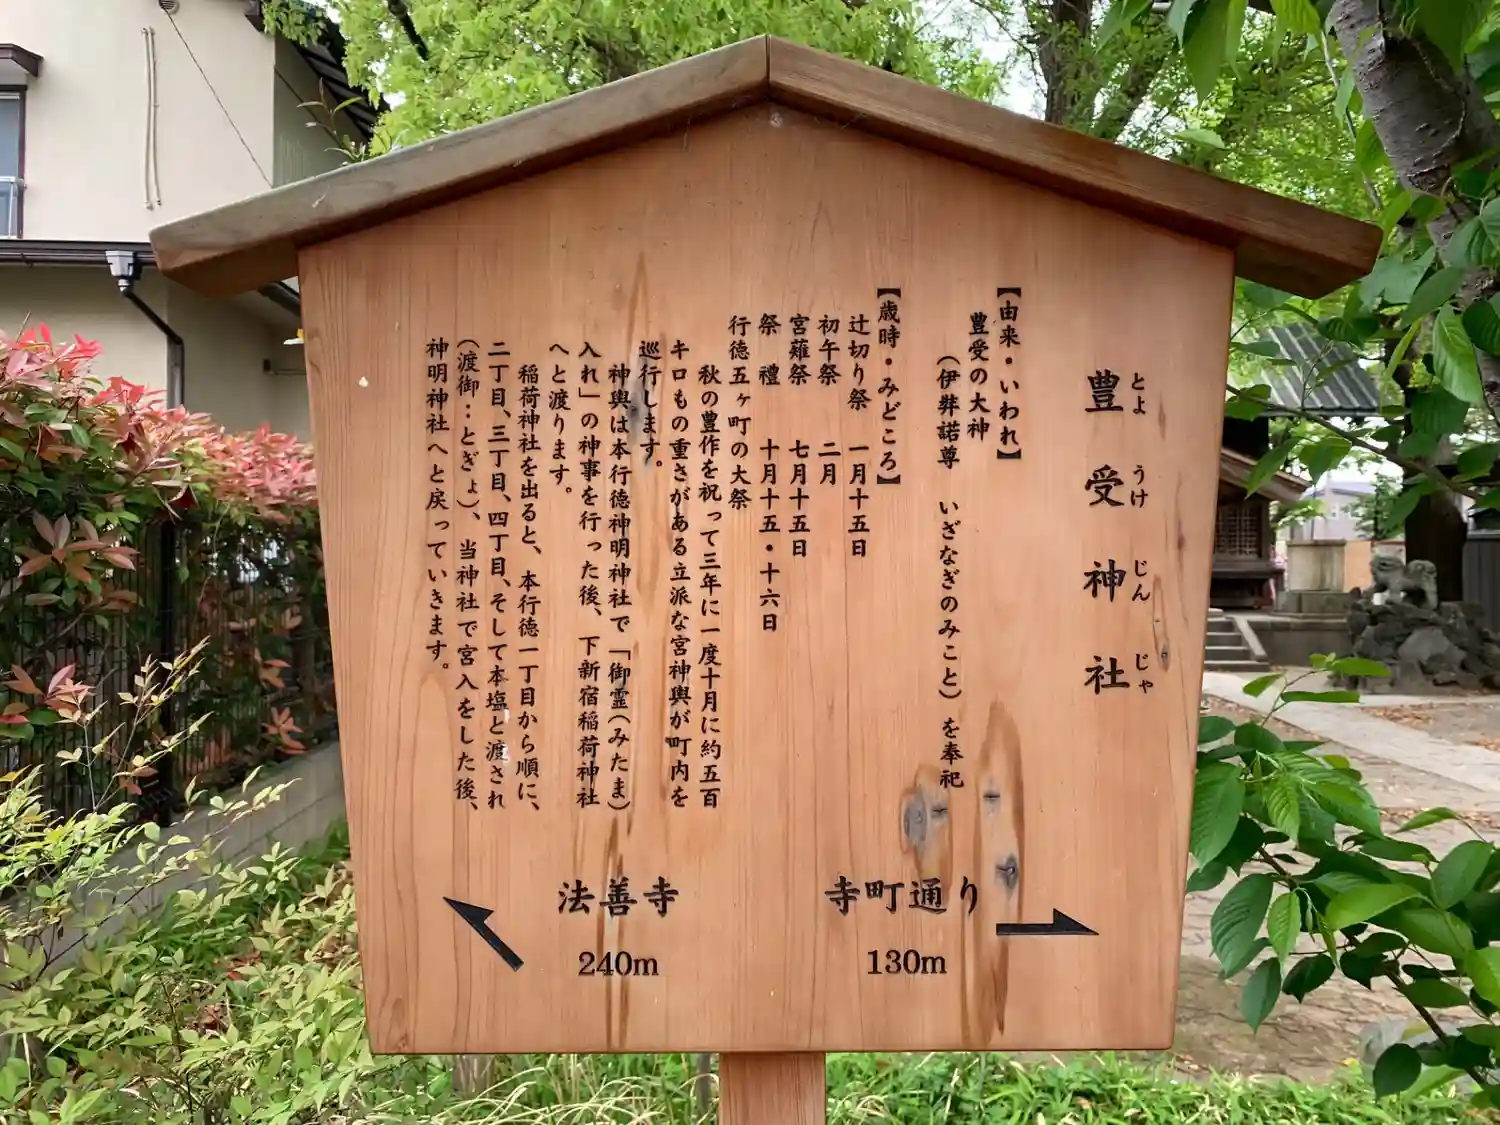 豊受神社
とようけじんじゃ
【由来・いわれ】
豊受の大神
（伊弉諾尊　いざなぎのみこと）を奉祀
【歳時・みどころ】
辻切り祭　一月十五日
初午祭　二月
宮薙祭　七月十五日
祭　禮　十月十五・十六日
行徳五ヶ町の大祭
秋の豊作を祝って三年に一度十月に約五百
キロもの重さがある立派な宮神輿が町内を
巡行します。
神輿は本行徳神明神社で「御霊（みたま）
入れ」の神事を行った後、下新宿稲荷神社
へと渡ります。
稲荷神社を出ると、本行徳一丁目から順に、
二丁目、三丁目、四丁目、そして本塩と渡され
（渡御：とぎょ）、当神社で宮入をした後、
神明神社へと戻っていきます。
法善寺
240m
寺町通り
130m